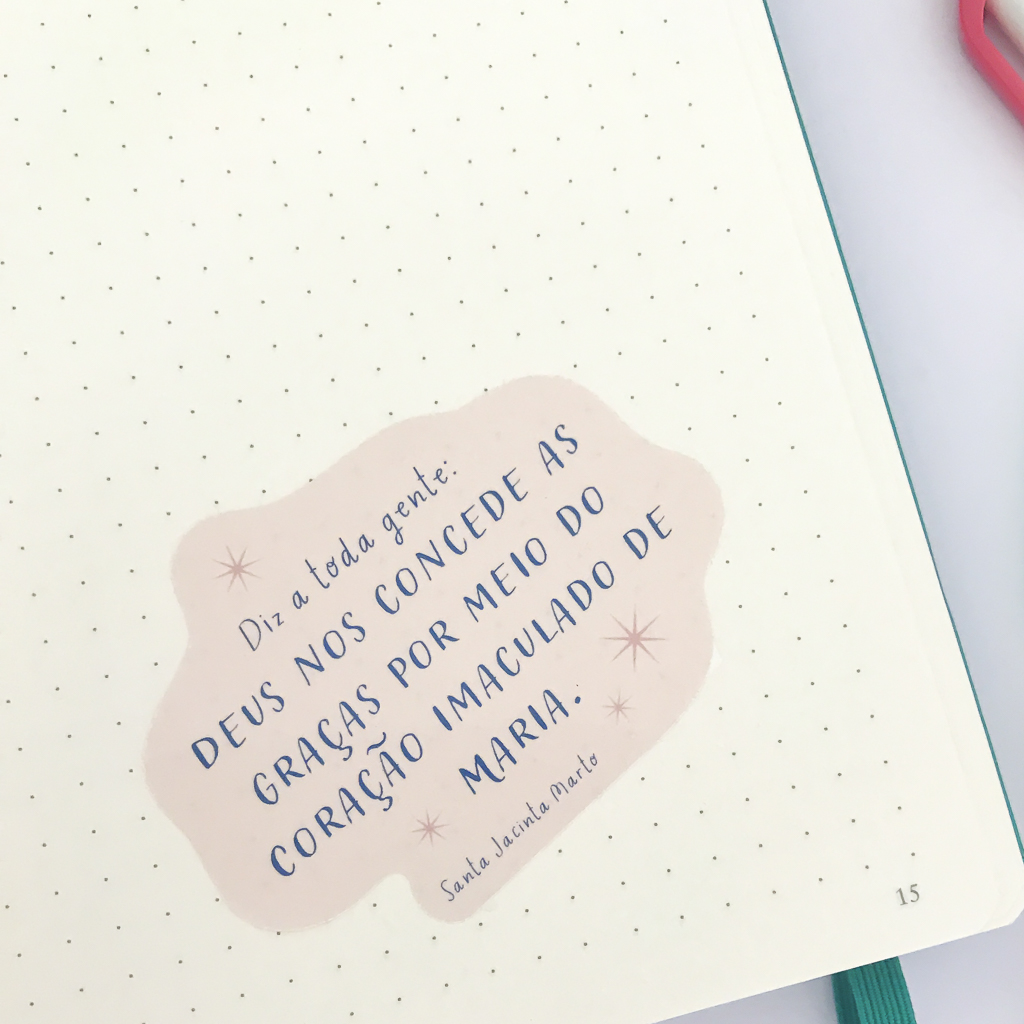 Diz a toda gente:
DEUS NOS CONCEDE AS
GRAÇAS POR MEIO DO
CORAÇÃO IMACULADO DE
MARIA.
Santa Jacinta Marto
15